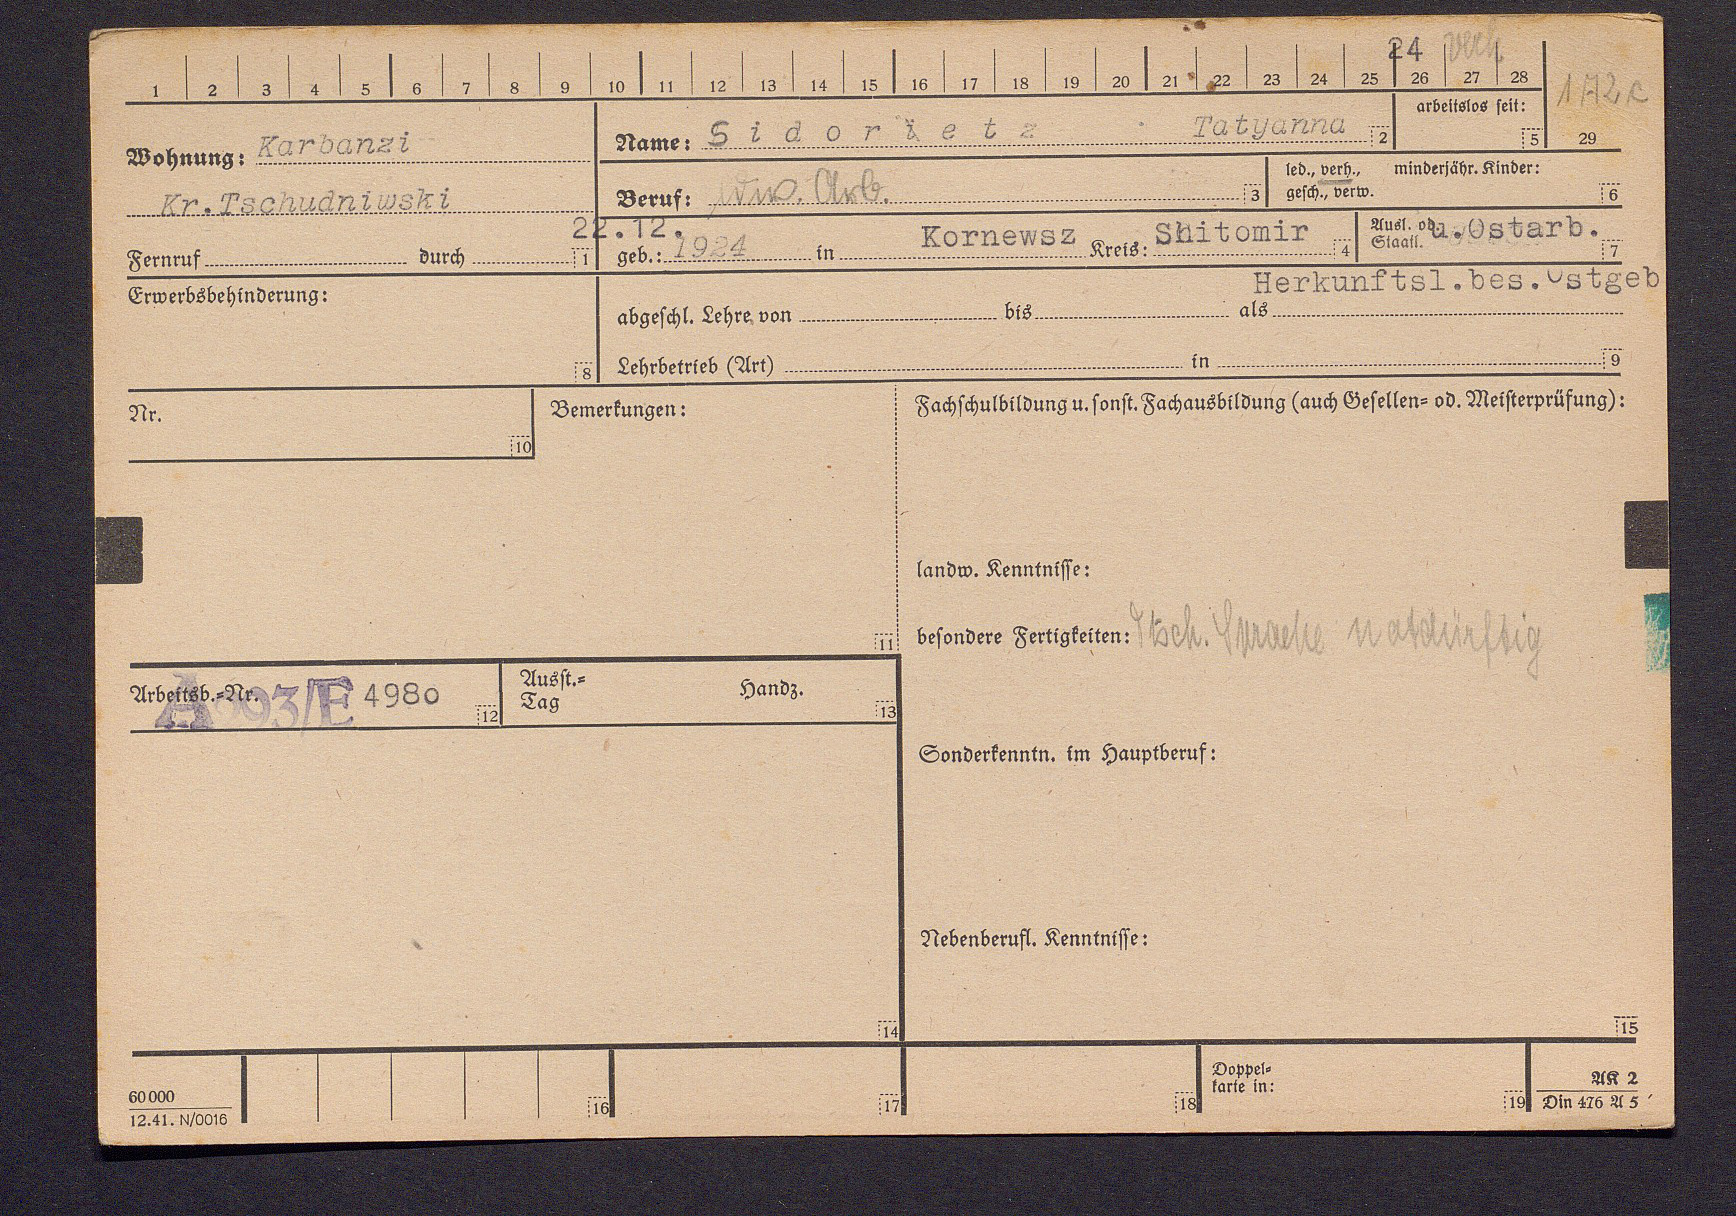 24 verh
1 2 3 4 5 6 7 8 9 10 11 12 13 14 15 16 17 18 19 20 21 22 23 24 25 26 27 28
1A2c
29
Wohnung: Karbanzi
Kr. Tschudniwski
Fernruf durch 1
Name: Sidorietz Tatyanna 2
arbeitslos seit: 5
Beruf: Arb. 3
led., verh., minderjähr. Kinder:
gesch., verw. 6
22.12.
geb.: 1924 in Kornewsz Kreis: Shitomir 4
Ausl. od. u. Ostarb.
Staatl. 7
Herkunftsl.bes.Ostgeb
Erwerbsbehinderung: 8
abgeschl. Lehre von bis als
Lehrbetrieb (Art) in 9
Nr. 10
Bemerkungen: 11
Fachschulbildung u. sonst. Fachausbildung (auch Gesellen= od. Meisterprüfung):
landw. Kenntnisse:
besondere Fertigkeiten: Dtsch. Sprache notdürftig
Arbeitsb.=Nr. A 393/E 4980 12
Ausst.=
Tag Handz. 13
Sonderkenntn. im Hauptberuf:
Nebenberufl. Kenntnisse:
14
15
60000
12.41. N/0016
16
17
18
Doppel=
karte in: 19
AK 2
Din 476 A 5